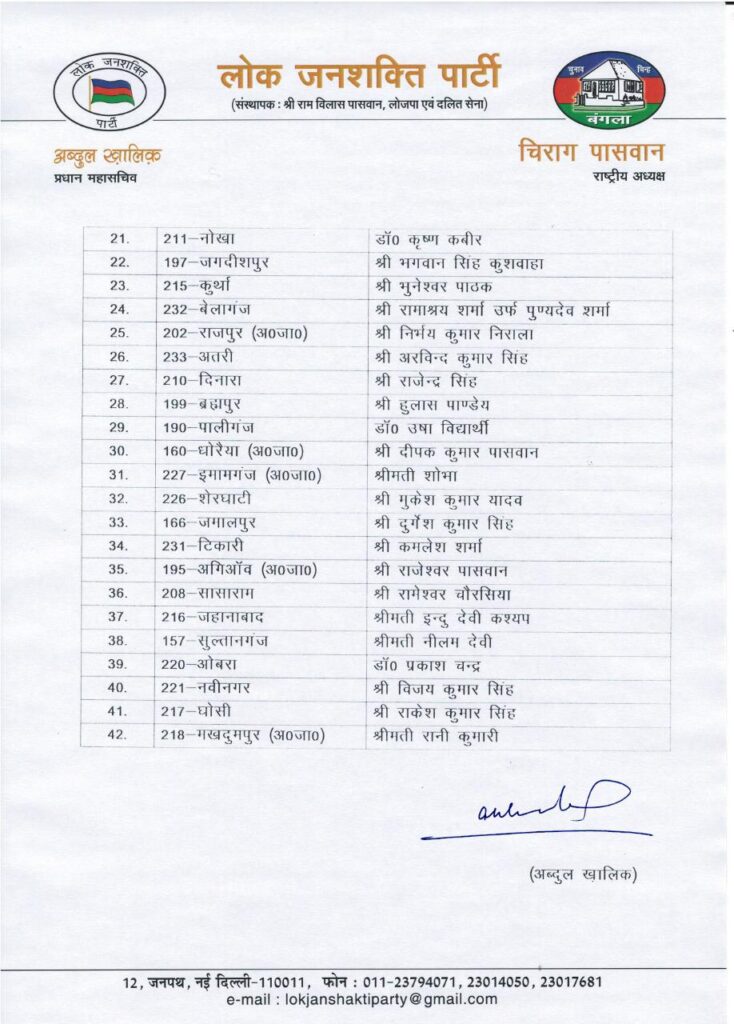 लोक जनशक्ति
पार्टी
लोक जनशक्ति पार्टी
(संस्थापक : श्री राम विलास पासवान, लोजपा एवं दलित सेना)
चुनाव चिन्ह
बंगला
अब्दुल ख़ालिक़
प्रधान महासचिव
चिराग पासवान
राष्ट्रीय अध्यक्ष
21. 211–नोखा डॉ0 कृष्ण कबीर
22. 197–जगदीशपुर श्री भगवान सिंह कुशवाहा
23. 215–कुर्था श्री भुनेश्वर पाठक
24. 232–बेलागंज श्री रामाश्रय शर्मा उर्फ पुण्यदेव शर्मा
25. 202–राजपुर (अ0जा0) श्री निर्भय कुमार निराला
26. 233–अतरी श्री अरविन्द कुमार सिंह
27. 210–दिनारा श्री राजेन्द्र सिंह
28. 199–ब्रह्मपुर श्री हुलास पाण्डेय
29. 190–पालीगंज डॉ0 उषा विद्यार्थी
30. 160–धोरैया (अ0जा0) श्री दीपक कुमार पासवान
31. 227–इमामगंज (अ0जा0) श्रीमती शोभा
32. 226–शेरघाटी श्री मुकेश कुमार यादव
33. 166–जमालपुर श्री दुर्गेश कुमार सिंह
34. 231–टिकारी श्री कमलेश शर्मा
35. 195–अगिऑव (अ0जा0) श्री राजेश्वर पासवान
36. 208–सासाराम श्री रामेश्वर चौरसिया
37. 216–जहानाबाद श्रीमती इन्दु देवी कश्यप
38. 157–सुल्तानगंज श्रीमती नीलम देवी
39. 220–ओबरा डॉ0 प्रकाश चन्द्र
40. 221–नवीनगर श्री विजय कुमार सिंह
41. 217–घोसी श्री राकेश कुमार सिंह
42. 218–मखदुमपुर (अ0जा0) श्रीमती रानी कुमारी
(अब्दुल ख़ालिक)
12, जनपथ, नई दिल्ली-110011, फोन : 011-23794071, 23014050, 23017681
e-mail : lokjanshaktiparty@gmail.com